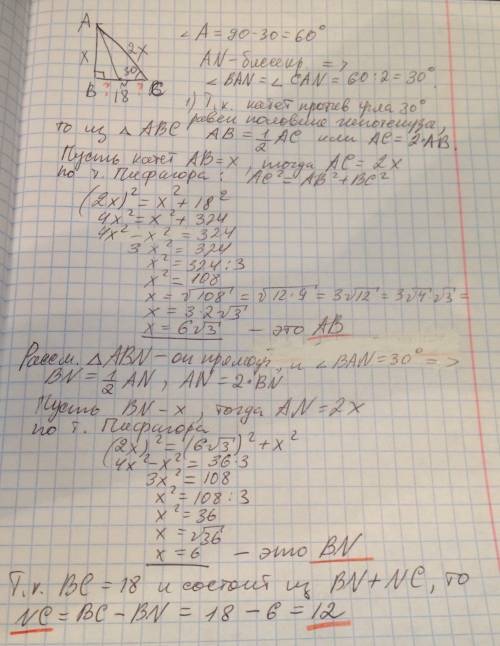 A
∠A = 90 - 30 = 60°
x
2x
30°
AN - биссект. =>
∠BAN = ∠CAN = 60 : 2 = 30°
B ? 18 N ? C
1) Т.к. катет против угла 30°
равен половине гипотенузы,
то из △ ABC AB = 1/2 AC или AC = 2·AB.
Пусть катет AB = x, тогда AC = 2x
по т. Пифагора: AC² = AB² + BC²
(2x)² = x² + 18²
4x² = x² + 324
4x² - x² = 324
3x² = 324
x² = 324 : 3
x² = 108
x = √108 = √12·9 = 3√12 = 3√4·√3 =
x = 3·2√3
x = 6√3 - это AB
Рассм. △ABN - он прямоуг, и ∠BAN = 30° =>
BN = 1/2 AN, AN = 2·BN
Пусть BN - x, тогда AN = 2x
по т. Пифагора
(2x)² = (6√3)² + x²
4x² - x² = 36·3
3x² = 108
x² = 108 : 3
x² = 36
x = √36
x = 6 - это BN
Т.к. BC = 18 и состоит из BN + NC, то
NC = BC - BN = 18 - 6 = 12